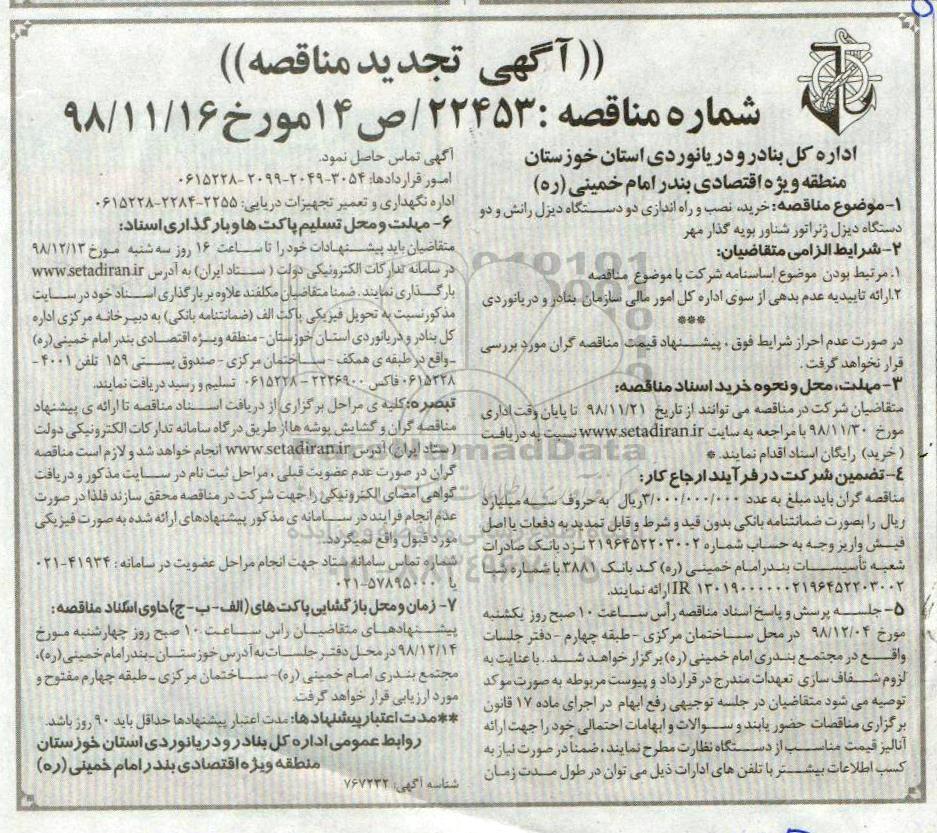 ((آگهی تجدید مناقصه))
شماره مناقصه :۲۲۴۵۳/ص۱۴مورخ۹۸/۱۱/۱۶
اداره کل بنادر و دریانوردی استان خوزستان
منطقه ویژه اقتصادی بندر امام خمینی (ره)
۱-موضوع مناقصه: خرید، نصب و راه اندازی دو دستگاه دیزل رانش و دو
دستگاه دیزل ژنراتور شناور بویه گذار مهر
۲-شرایط الزامی متقاضیان:
۱.مرتبط بودن موضوع اساسنامه شرکت با موضوع مناقصه
۲.ارائه تاییدیه عدم بدهی از سوی اداره کل امور مالی سازمان بنادر و دریانوردی
***
در صورت عدم احراز شرایط فوق، پیشنهاد قیمت مناقصه گران مورد بررسی
قرار نخواهد گرفت.
۳-مهلت، محل و نحوه خرید اسناد مناقصه:
متقاضیان شرکت در مناقصه می توانند از تاریخ ۹۸/۱۱/۲۱ تا پایان وقت اداری
مورخ ۹۸/۱۱/۳۰ با مراجعه به سایت www.setadiran.ir نسبت به دریافت
(خرید) رایگان اسناد اقدام نمایند.*
۴-تضمین شرکت در فرآیند ارجاع کار:
مناقصه گران باید مبلغ به عدد ۳/۰۰۰/۰۰۰/۰۰۰ریال به حروف سه میلیارد
ریال را بصورت ضمانتنامه بانکی بدون قید و شرط و قابل تمدید به دفعات یا اصل
فیش واریز وجه به حساب شماره ۲۱۹۶۴۵۲۲۰۳۰۰۲ نزد بانک صادرات
شعبه تأسیسات بندرامام خمینی (ره) کد بانک ۳۸۸۱ با شماره شبا
IR ۱۳۰۱۹۰۰۰۰۰۰۲۱۹۶۴۵۲۲۰۳۰۰۲ ارائه نمایند.
۵- جلسه پرسش و پاسخ اسناد مناقصه رأس ساعت ۱۰ صبح روز یکشنبه
مورخ ۹۸/۱۲/۰۴ در محل ساختمان مرکزی -طبقه چهارم -دفتر جلسات
واقع در مجتمع بندری امام خمینی (ره) برگزار خواهد شد.. با عنایت به
لزوم شفاف سازی تعهدات مندرج در قرارداد و پیوست مربوطه به صورت موکد
توصیه می شود متقاضیان در جلسه توجیهی رفع ابهام در اجرای ماده ۱۷ قانون
برگزاری مناقصات حضور یابند و سوالات و ابهامات احتمالی خود را جهت ارائه
آنالیز قیمت مناسب از دستگاه نظارت مطرح نمایند، ضمنا در صورت نیاز به
کسب اطلاعات بیشتر با تلفن های ادارات ذیل می توان در طول مدت زمان
آگهی تماس حاصل نمود.
امور قراردادها: ۳۰۵۴-۲۰۴۹-۲۰۹۹-۰۶۱۵۲۲۸
اداره نگهداری و تعمیر تجهیزات دریایی: ۲۲۵۵-۲۲۸۴-۰۶۱۵۲۲۸
۶- مهلت و محل تسلیم پاکت ها و بارگذاری اسناد:
متقاضیان باید پیشنهادات خود را تا ساعت ۱۶ روز سه شنبه مورخ ۹۸/۱۲/۱۳
در سامانه تدارکات الکترونیکی دولت (ستاد ایران) به آدرس www.setadiran.ir
بارگذاری نمایند. ضمنا متقاضیان مکلفند علاوه بر بارگذاری اسناد خود در سایت
مذکور نسبت به تحویل فیزیکی پاکت الف (ضمانتنامه بانکی) به دبیرخانه مرکزی اداره
کل بنادر و دریانوردی استان خوزستان- منطقه ویژه اقتصادی بندر امام خمینی(ره)
-واقع در طبقه ی همکف -ساختمان مرکزی -صندوق پستی ۱۵۹ تلفن ۴۰۰۱-
۰۶۱۵۲۲۸فاکس ۲۲۲۶۹۰۰ - ۰۶۱۵۲۲۸ تسلیم و رسید دریافت نمایند.
تبصره:کلیه ی مراحل برگزاری از دریافت اسناد مناقصه تا ارائه ی پیشنهاد
مناقصه گران و گشایش پوشه ها از طریق درگاه سامانه تدارکات الکترونیکی دولت
(ستاد ایران) آدرس www.setadiran.ir انجام خواهد شد و لازم است مناقصه
گران در صورت عدم عضویت قبلی، مراحل ثبت نام در سایت مذکور و دریافت
گواهی امضای الکترونیکی را جهت شرکت در مناقصه محقق سازند فلذا در صورت
عدم انجام فرایند در سامانه ی مذکور پیشنهادهای ارائه شده به صورت فیزیکی
مورد قبول واقع نمیگردد.
شماره تماس سامانه ستاد جهت انجام مراحل عضویت در سامانه : ۴۱۹۳۴-۰۲۱
یا ۵۷۸۹۵۰۰۰-۰۲۱
۷- زمان و محل بازگشایی پاکت های (الف-ب-ج) حاوی اسناد مناقصه:
پیشنهادهای متقاضیان راس ساعت ۱۰ صبح روز چهارشنبه مورخ
۹۸/۱۲/۱۴ در محل دفتر جلسات به آدرس خوزستان-بندرامام خمینی (ره)،
مجتمع بندری امام خمینی (ره)- ساختمان مرکزی -طبقه چهارم مفتوح و
مورد ارزیابی قرار خواهد گرفت.
**مدت اعتبار پیشنهادها: مدت اعتبار پیشنهادها حداقل باید ۹۰ روز باشد.
روابط عمومی اداره کل بنادر و دریانوردی استان خوزستان
منطقه ویژه اقتصادی بندر امام خمینی (ره)
شناسه آگهی: ۷۶۷۲۳۲